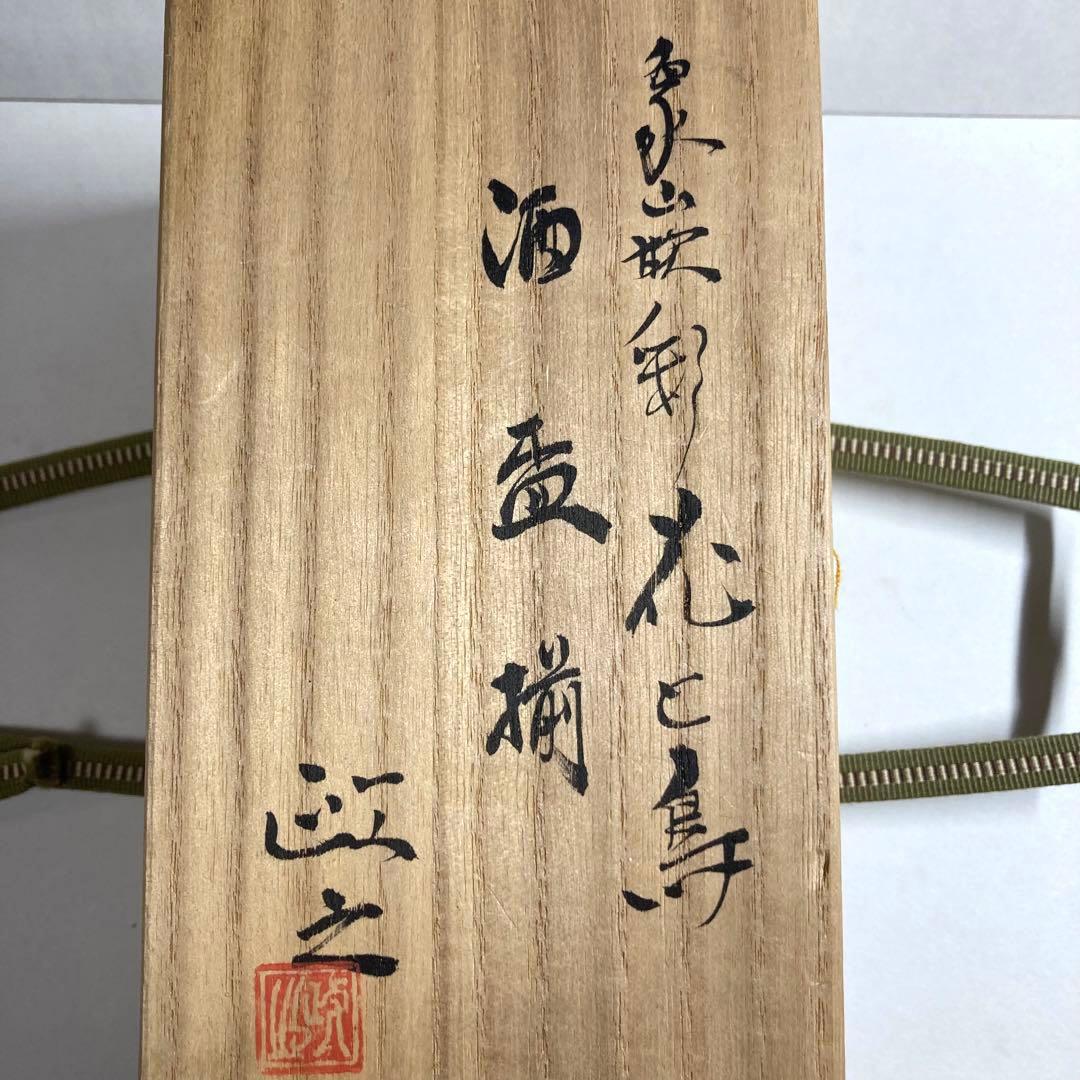 象嵌彩花と鳥
酒盃揃
政之